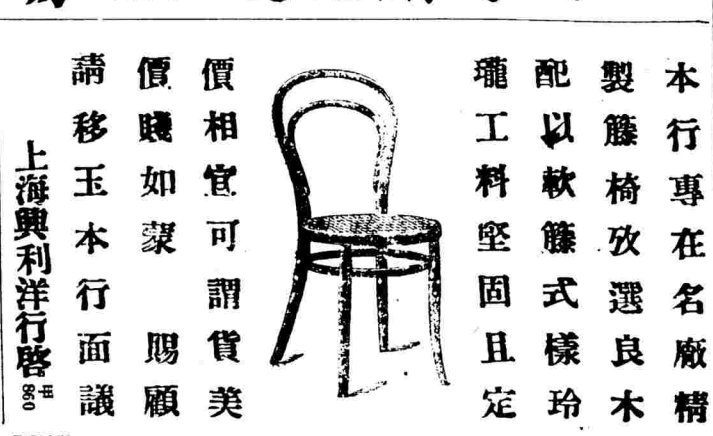 本行專在名廠精
製籐椅攷選良木
配以軟籐式樣玲
瓏工料堅固且定
價相宜可謂貨美
價賤如蒙 賜顧
請移玉本行面議
上海興利洋行啓
甲860